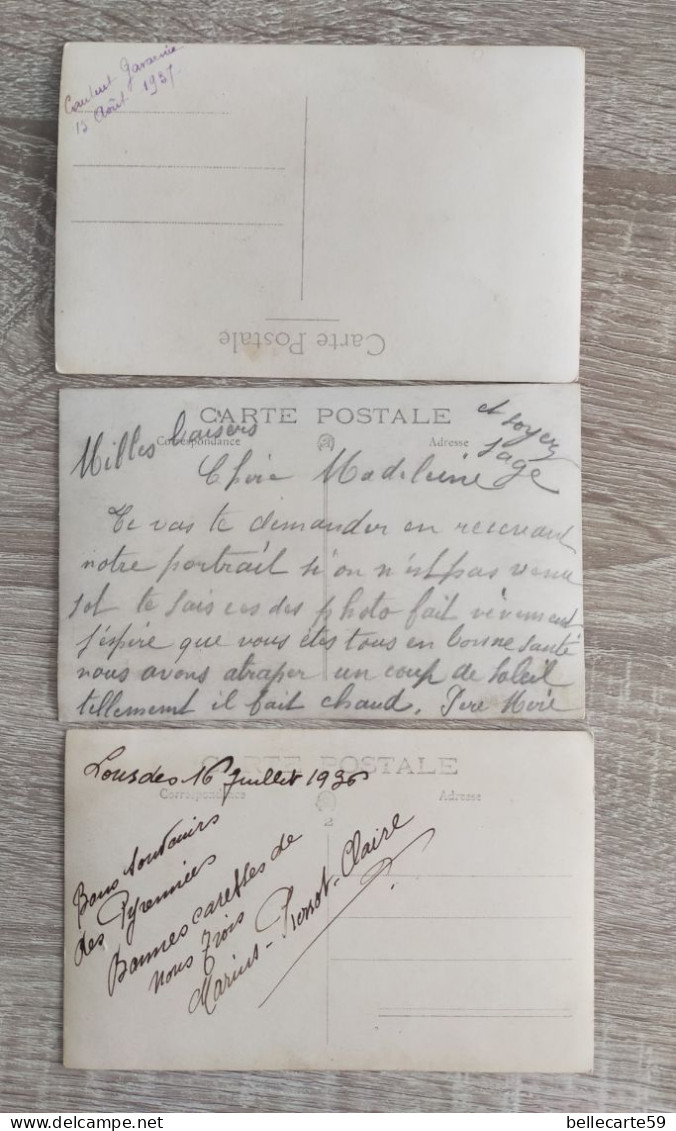 Gavarnie
13 Août 1937
Carte Postale
CARTE POSTALE
Correspondance
Adresse
Milles baisers
et soyez
sage
Chère Madeleine
Te vas te demander en recevant
notre portrait si on n'est pas venu
sot te sais ces des photo fait vivement
j'espère que vous êtes tous en bonne santé
nous avons atraper un coup de soleil
tellement il fait chaud. Père Mère
CARTE POSTALE
Lourdes 16 Juillet 1936
Correspondance
Adresse
2
Bons Souvenirs
des Pyrennées
Bonnes caresses de
nous trois
Marius - Claire
bellecarte59